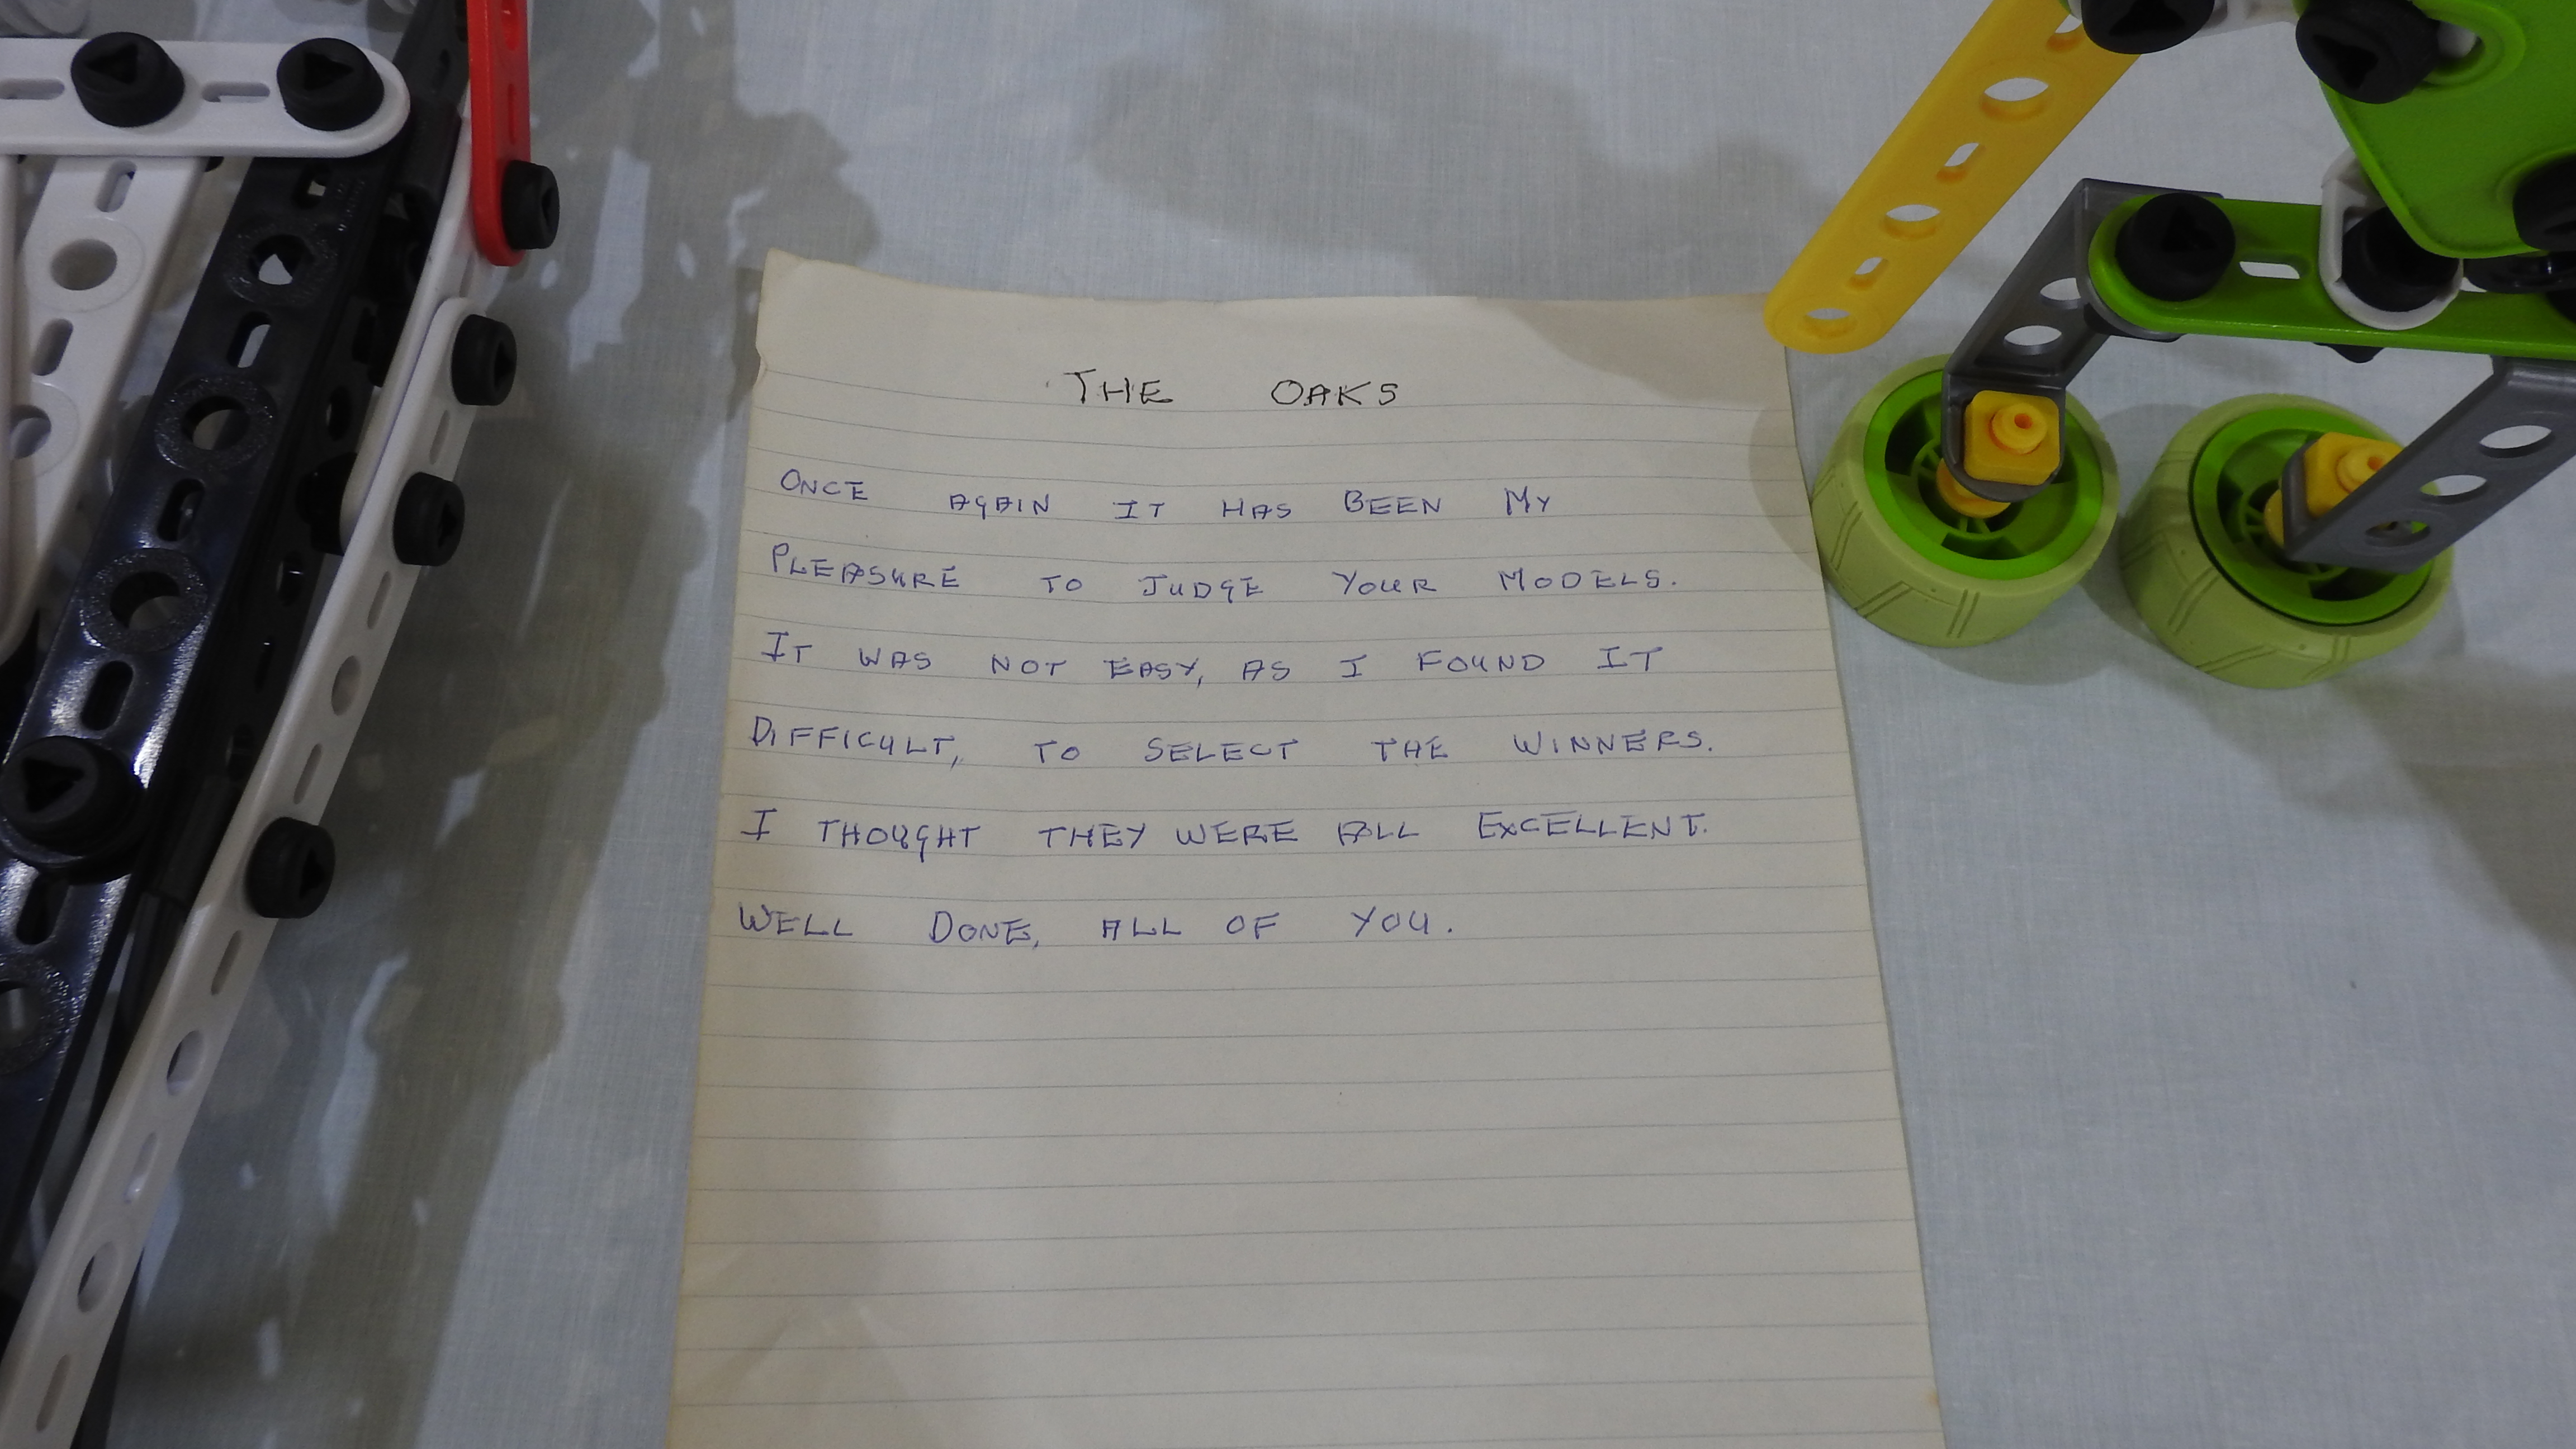 THE OAKS
ONCE AGAIN IT HAS BEEN MY
PLEASURE TO JUDGE YOUR MODELS.
IT WAS NOT EASY, AS I FOUND IT
DIFFICULT, TO SELECT THE WINNERS.
I THOUGHT THEY WERE ALL EXCELLENT.
WELL DONE, ALL OF YOU.